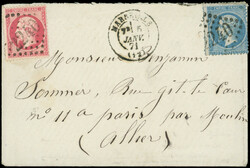 MARSEILLE
JANV.
71
Monsieur Benjamin
Sommer, Rue Gît le Cœur
n° 11 à Paris par Moulins
Allier)